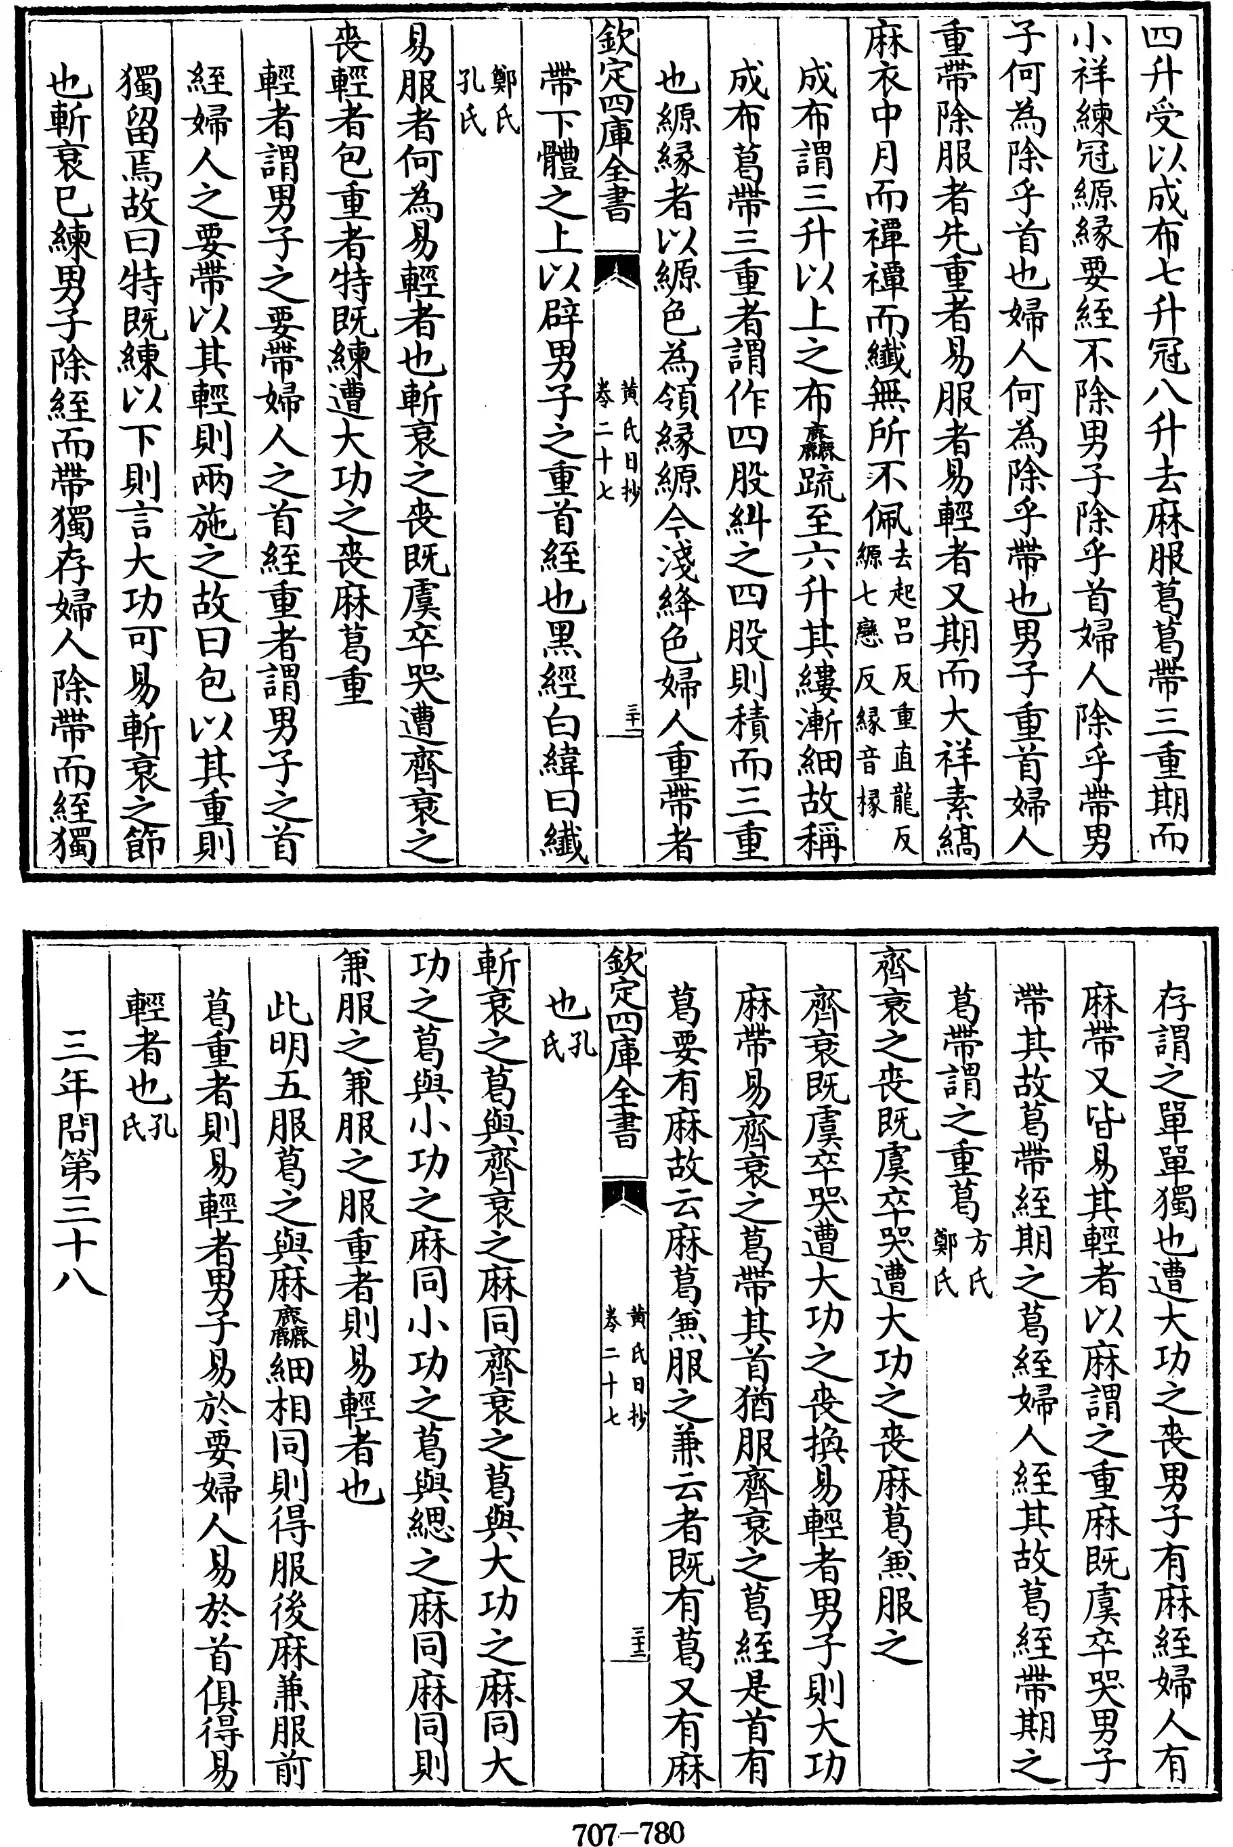 四升受以成布七升冠八升去麻服葛葛帶三重期而
小祥練冠縓緣要絰不除男子除乎首婦人除乎帶男
子何為除乎首也婦人何為除乎帶也男子重首婦人
重帶除服者先重者易服者易輕者又期而大祥素縞
麻衣中月而禫禫而纖無所不佩去起呂反重直龍反縓七戀反緣音掾
成布謂三升以上之布麤疏至六升其縷漸細故稱
成布葛帶三重者謂作四股糾之四股則積而三重
也縓緣者以縓色為領緣縓今淺絳色婦人重帶者
欽定四庫全書
黃氏日抄
卷二十七
三十二
帶下體之上以辟男子之重首絰也黑經白緯曰纖
鄭氏
孔氏
易服者何為易輕者也斬衰之喪既虞卒哭遭齊衰之
喪輕者包重者特既練遭大功之喪麻葛重
輕者謂男子之要帶婦人之首絰重者謂男子之首
絰婦人之要帶以其輕則兩施之故曰包以其重則
獨留焉故曰特既練以下則言大功可易斬衰之節
也斬衰已練男子除絰而帶獨存婦人除帶而絰獨
存謂之單單獨也遭大功之喪男子有麻絰婦人有
麻帶又皆易其輕者以麻謂之重麻既虞卒哭男子
帶其故葛帶絰期之葛絰婦人絰其故葛絰帶期之
葛帶謂之重葛方氏鄭氏
齊衰之喪既虞卒哭遭大功之喪麻葛兼服之
齊衰既虞卒哭遭大功之喪換易輕者男子則大功
麻帶易齊衰之葛帶其首猶服齊衰之葛絰是首有
葛要有麻故云麻葛兼服之兼云者既有葛又有麻
欽定四庫全書
黃氏日抄
卷二十七
三十三
也孔氏
斬衰之葛與齊衰之麻同齊衰之葛與大功之麻同大
功之葛與小功之麻同小功之葛與緦之麻同麻同則
兼服之兼服之服重者則易輕者也
此明五服葛之與麻麤細相同則得服後麻兼服前
葛重者則易輕者男子易於要婦人易於首俱得易
輕者也孔氏
三年問第三十八
707-780